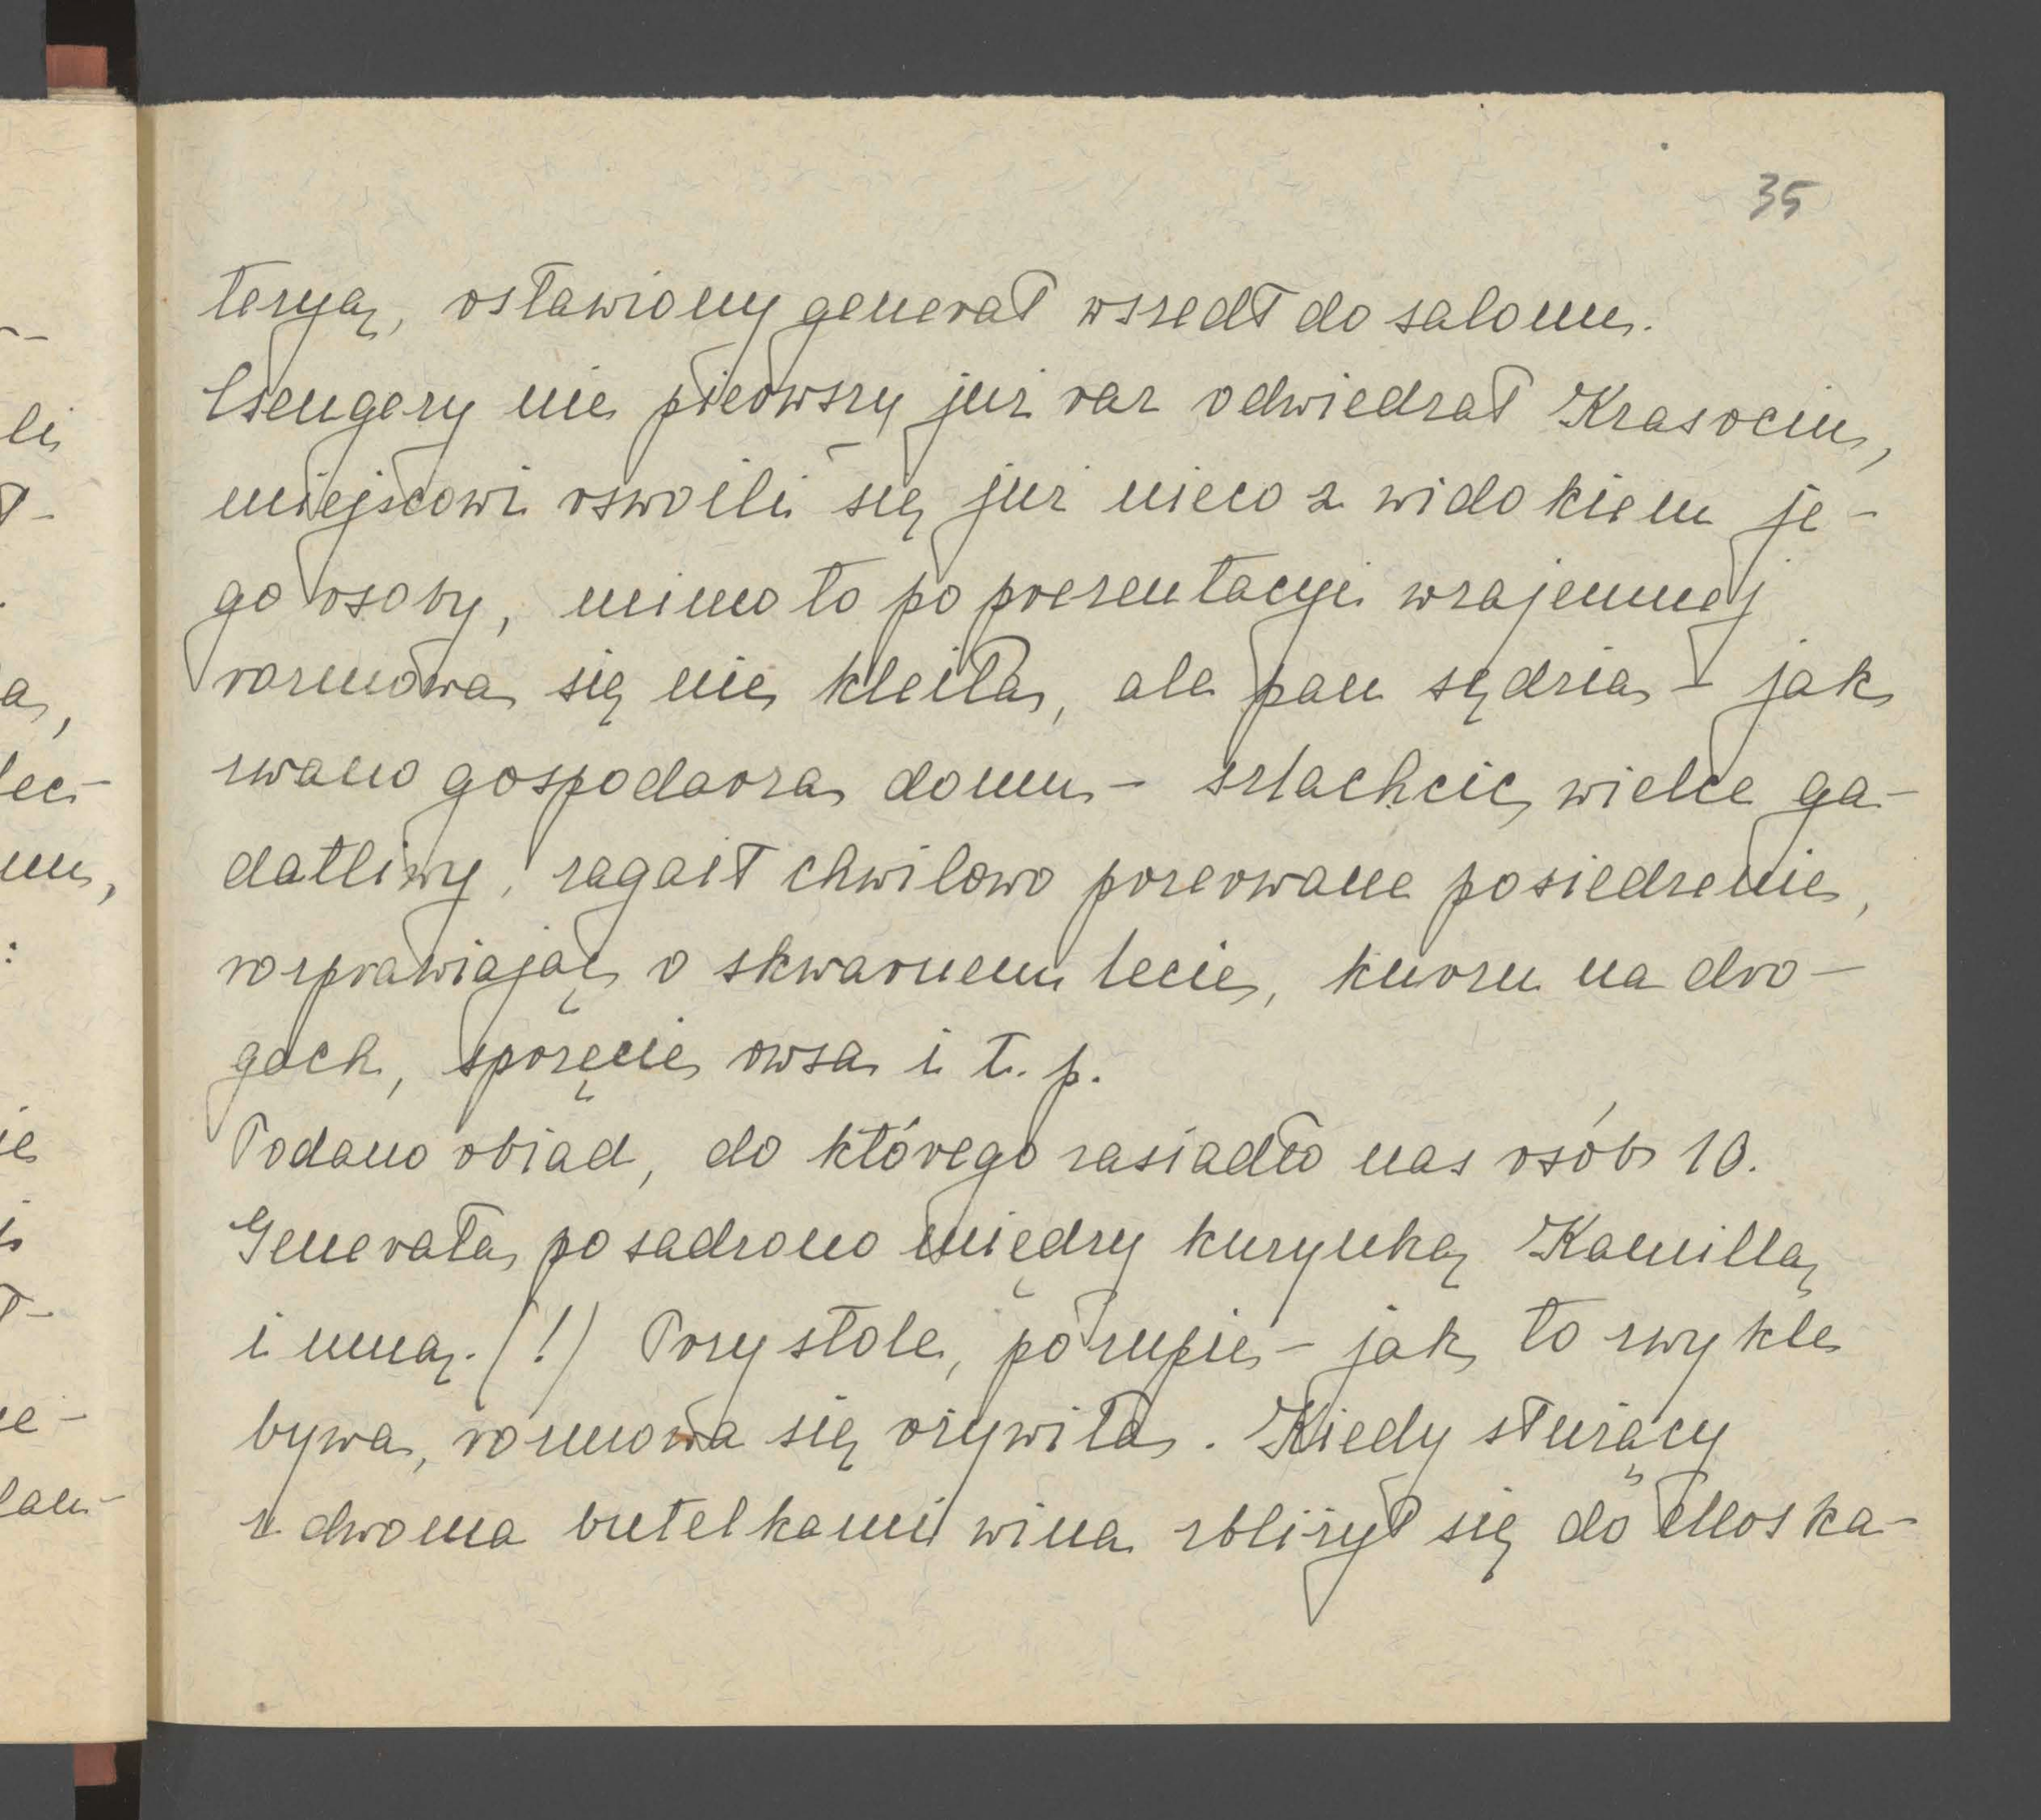 35
teryą, osławiony generał wszedł do salonu.
Csengery nie pierwszy już raz odwiedzał Krasocin,
miejscowi oswoili się już nieco z widokiem je-
go osoby, mimo to po prezentacyi wzajemnej
rozmowa się nie kleiła, ale pan sędzia - jak
zwano gospodarza domu - szlachcic wielce ga-
datliwy, zagaił chwilowo przerwane posiedzenie,
rozprawiając o skwarnem lecie, kurzu na dro-
gach, sprzęcie owsa i t. p.
Podano obiad, do którego zasiadło nas osób 10.
Generała posadzono między kuzynką Kamillą
i mną. (!) Przy stole, po zupie - jak to zwykle
bywa, rozmowa się ożywiła. Kiedy służący
z dwoma butelkami wina zbliżył się do Moska-
li
ł-
a,
:
ie
ł-